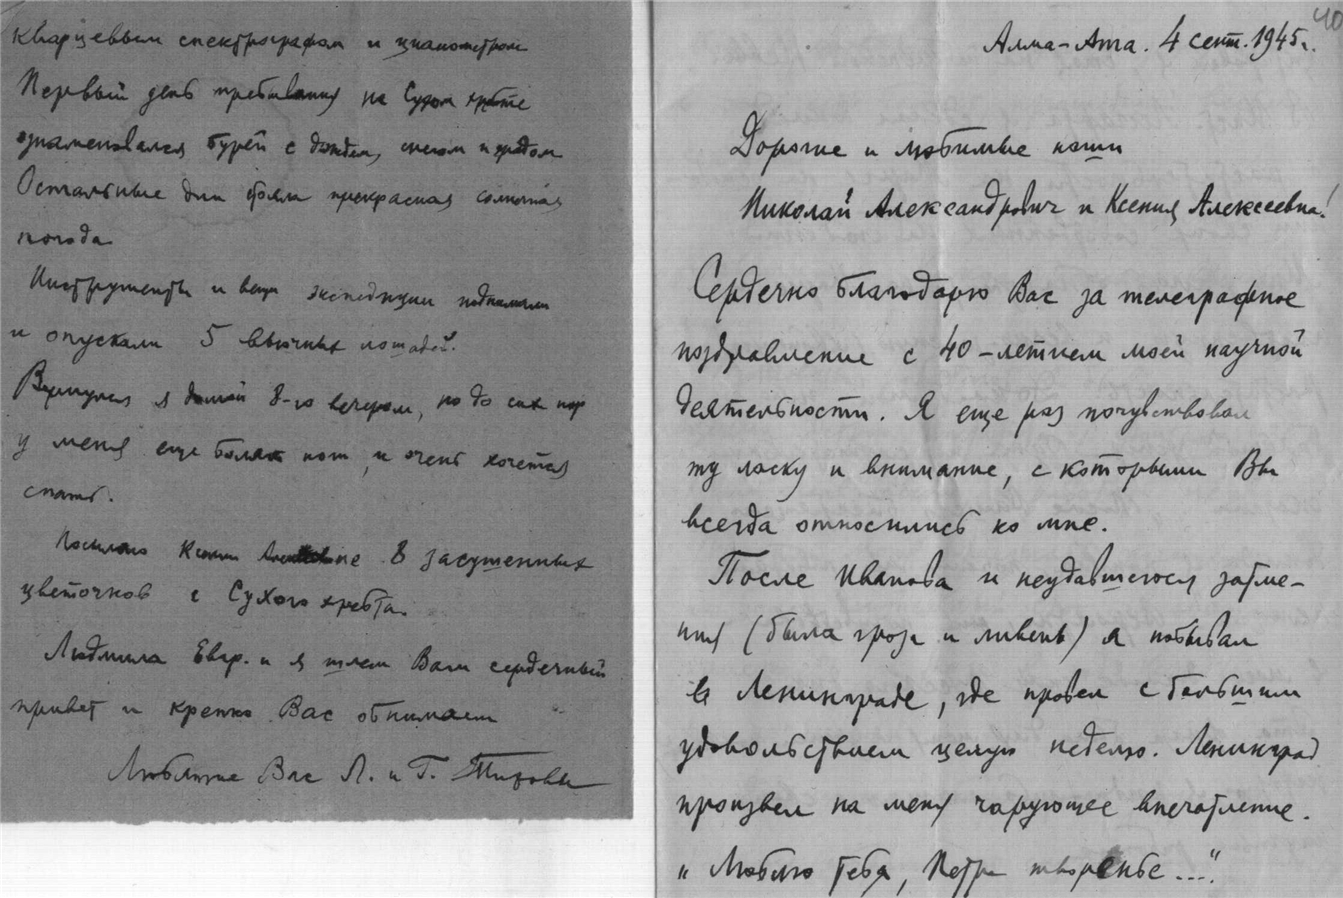 кварцевым спектрографом и цианометром
Первый день пребывания на Сухом хребте
ознаменовался бурей с дождем, снегом и градом
Остальные дни была прекрасная солнечная
погода.
Инструменты и вещи экспедиции поднимали
и опускали 5 вьючных лошадей.
Вернулся я домой 8-го вечером, но до сих пор
у меня еще болят ноги, и очень хочется
спать.
Посылаю Ксении Алексеевне 8 засушенных
цветочков с Сухого хребта.
Людмила Евгр. и я шлем Вам сердечный
привет и крепко Вас обнимаем
Любящие Вас Л. и Г. Тиховы
40
Алма-Ата. 4 сент. 1945 г.
Дорогие и любимые наши
Николай Александрович и Ксения Алексеевна!
Сердечно благодарю Вас за телеграфное
поздравление с 40-летием моей научной
деятельности. Я еще раз почувствовал
ту ласку и внимание, с которыми Вы
всегда относились ко мне.
После Иванова и неудавшегося затме-
ния (была гроза и ливень) я побывал
в Ленинграде, где провел с большим
удовольствием целую неделю. Ленинград
произвел на меня чарующее впечатление.
„Люблю тебя, Петра творенье..."